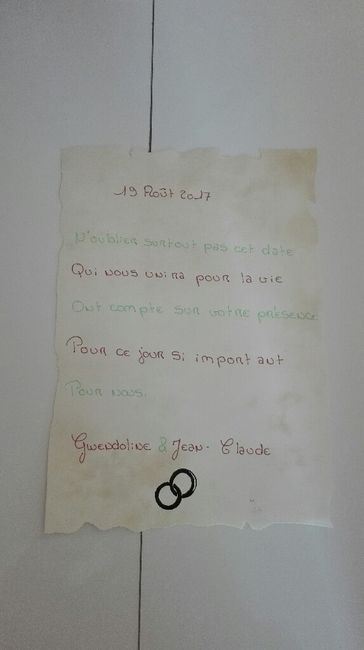 19 Août 2017
N'oublier surtout pas cet date
Qui nous unira pour la vie
Ont compte sur votre présence
Pour ce jour si important
Pour nous.
Gwendoline & Jean-Claude